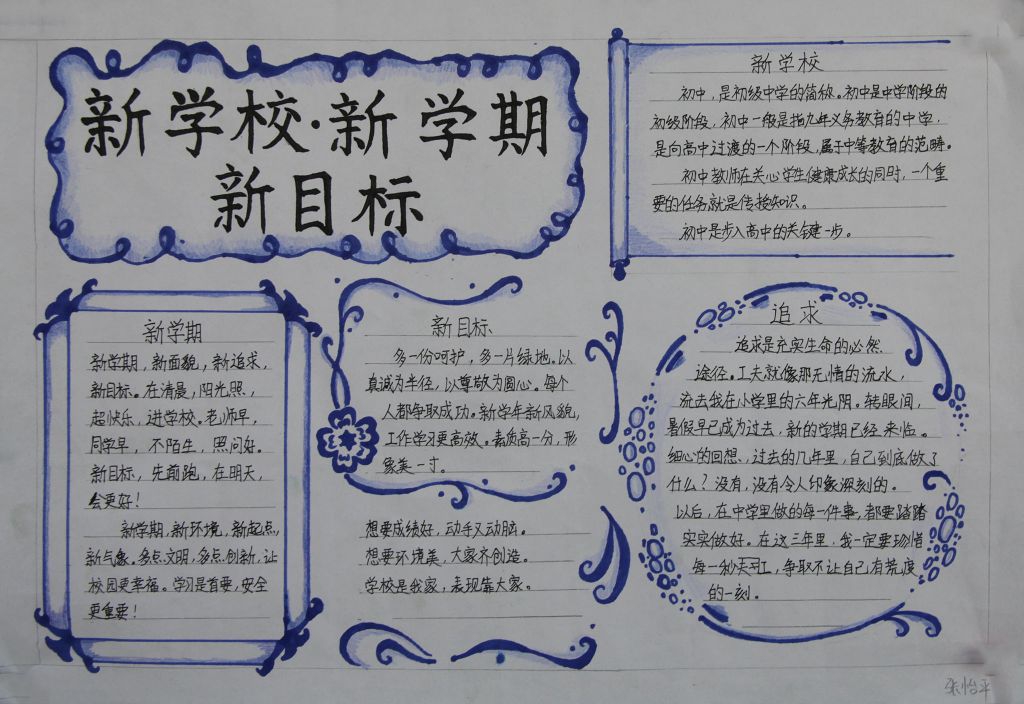 新学校·新学期
新目标
新学校
初中，是初级中学的简称。初中是中学阶段的
初级阶段，初中一般是指九年义务教育的中学，
是向高中过渡的一个阶段，属于中等教育的范畴。
初中教师在关心学生健康成长的同时，一个重
要的任务就是传授知识。
初中是步入高中的关键一步。
新学期
新学期，新面貌，新追求，
新目标。在清晨，阳光照，
超快乐，进学校。老师早，
同学早，不陌生，照问好。
新目标，先前跑，在明天，
会更好！
新学期，新环境，新起点，
新气象。多点文明，多点创新，让
校园更幸福。学习是首要，安全
更重要！
新目标
多一份呵护，多一片绿地。以
真诚为半径，以尊敬为圆心。每个
人都争取成功。新学年新风貌，
工作学习更高效。素质高一分，形
象美一寸。
想要成绩好，动手又动脑。
想要环境美，大家齐创造。
学校是我家，表现靠大家。
追求
追求是充实生命的必然
途径。工夫就像那无情的流水，
流去我在小学里的六年光阴。转眼间，
暑假早已成为过去，新的学期已经来临。
细心的回想、过去的几年里，自己到底做了
什么？没有，没有令人印象深刻的。
以后，在中学里做的每一件事，都要踏踏
实实做好。在这三年里，我一定要珍惜
每一秒，争取不让自己有荒废
的一刻。
张怡平